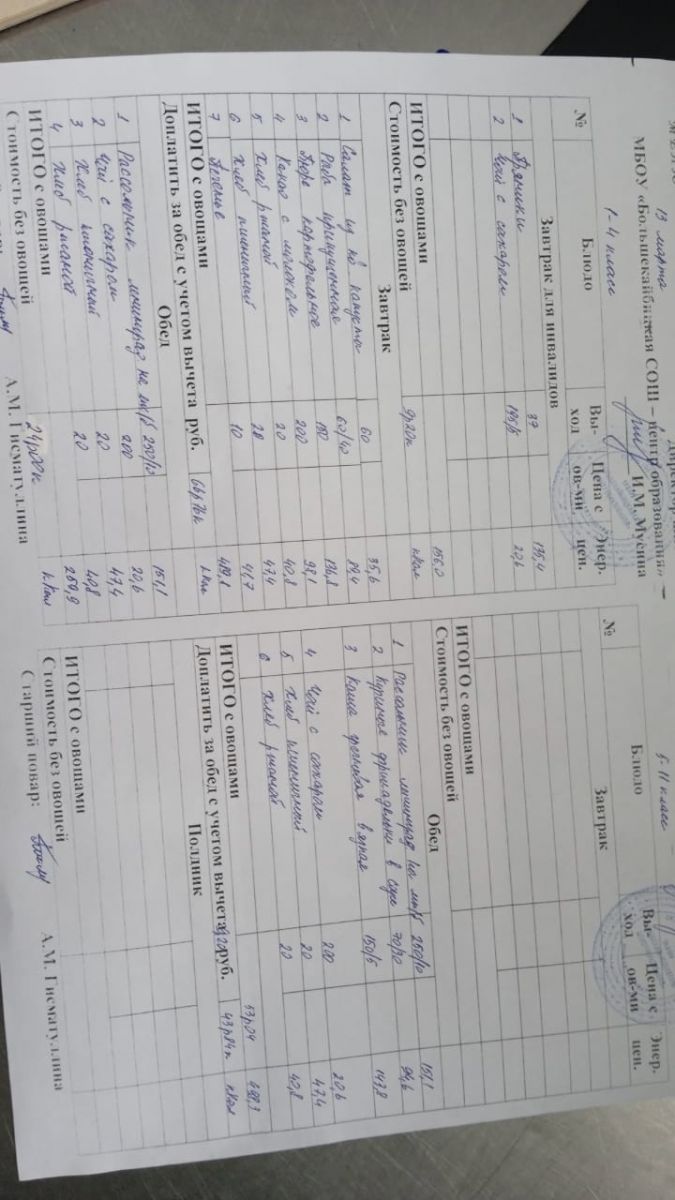 13 марта
МБОУ «Большекайбицкая СОШ – центр образования» –
И.М. Мусина
1-4 класс
№ Блюдо Вы-ход Цена с ов-ми Энер. цен.
Завтрак для инвалидов
1 Пряники 37 135,4
2 Чай с сахаром 195/5 20,6
ИТОГО с овощами 156,0
Стоимость без овощей 9р20к ккал
Завтрак
1 Салат из капусты 60 35,6
2 Рыба припущенная 60/40 89,4
3 Пюре картофельное 150 134,8
4 Какао с молоком 200 98,1
5 Хлеб ржаной 20 40,8
6 Хлеб пшеничный 28 47,4
7 Печенье 10 41,7
ИТОГО с овощами 489,8
Доплатить за обед с учетом вычета руб. 66р76к ккал
Обед
1 Рассольник ленинград на м/б 250/10 151,1
2 Чай с сахаром 200 20,6
3 Хлеб пшеничный 20 47,4
4 Хлеб ржаной 20 40,8
ИТОГО с овощами 259,9
Стоимость без овощей 24р00к ккал
А.М. Гисматуллина
5-11 класс
№ Блюдо Вы-ход Цена с ов-ми Энер. цен.
Завтрак
ИТОГО с овощами
Стоимость без овощей
Обед
1 Рассольник ленинград на м/б 250/10 151,1
2 Куриные фрикадельки в соусе 70/30 94,6
3 Каша вязкая 150/5 143,8
4 Чай с сахаром 200 20,6
5 Хлеб пшеничный 20 47,4
6 Хлеб ржаной 20 40,8
ИТОГО с овощами 53р04 498,3
Доплатить за обед с учетом вычета руб. 43р84к ккал
Полдник
ИТОГО с овощами
Стоимость без овощей
Старший повар: А.М. Гисматуллина